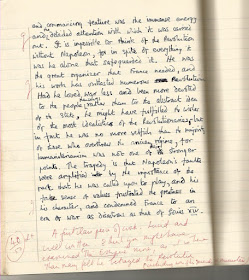 and commanding feature was the immense energy
and detailed attention with which it was carried
out. It is impossible to think of the Revolution
without Napoleon, for in spite of everything it
was he alone that safeguarded it. He was
the great organiser that France needed, and
his work has outlasted numerous Revolutions.
Had he loved war less and been more devoted
to the people rather than to the abstract idea
of the State, he might have fulfilled the wishes
of the most idealistic of the Revolutionaries, but
in fact he was no more selfish than the majority
of those who overthrew the ancien régime, for
humanitarianism was not one of the strong
points. The tragedy is that Napoleon's faults
were amplified by the importance of the
part that he was called upon to play, and his
false sense of values frustrated the greatness in
his character, and condemned France to an
era of war as disastrous as that of Louis XIV.
A first class piece of work: lucid and
well written. I think you might have